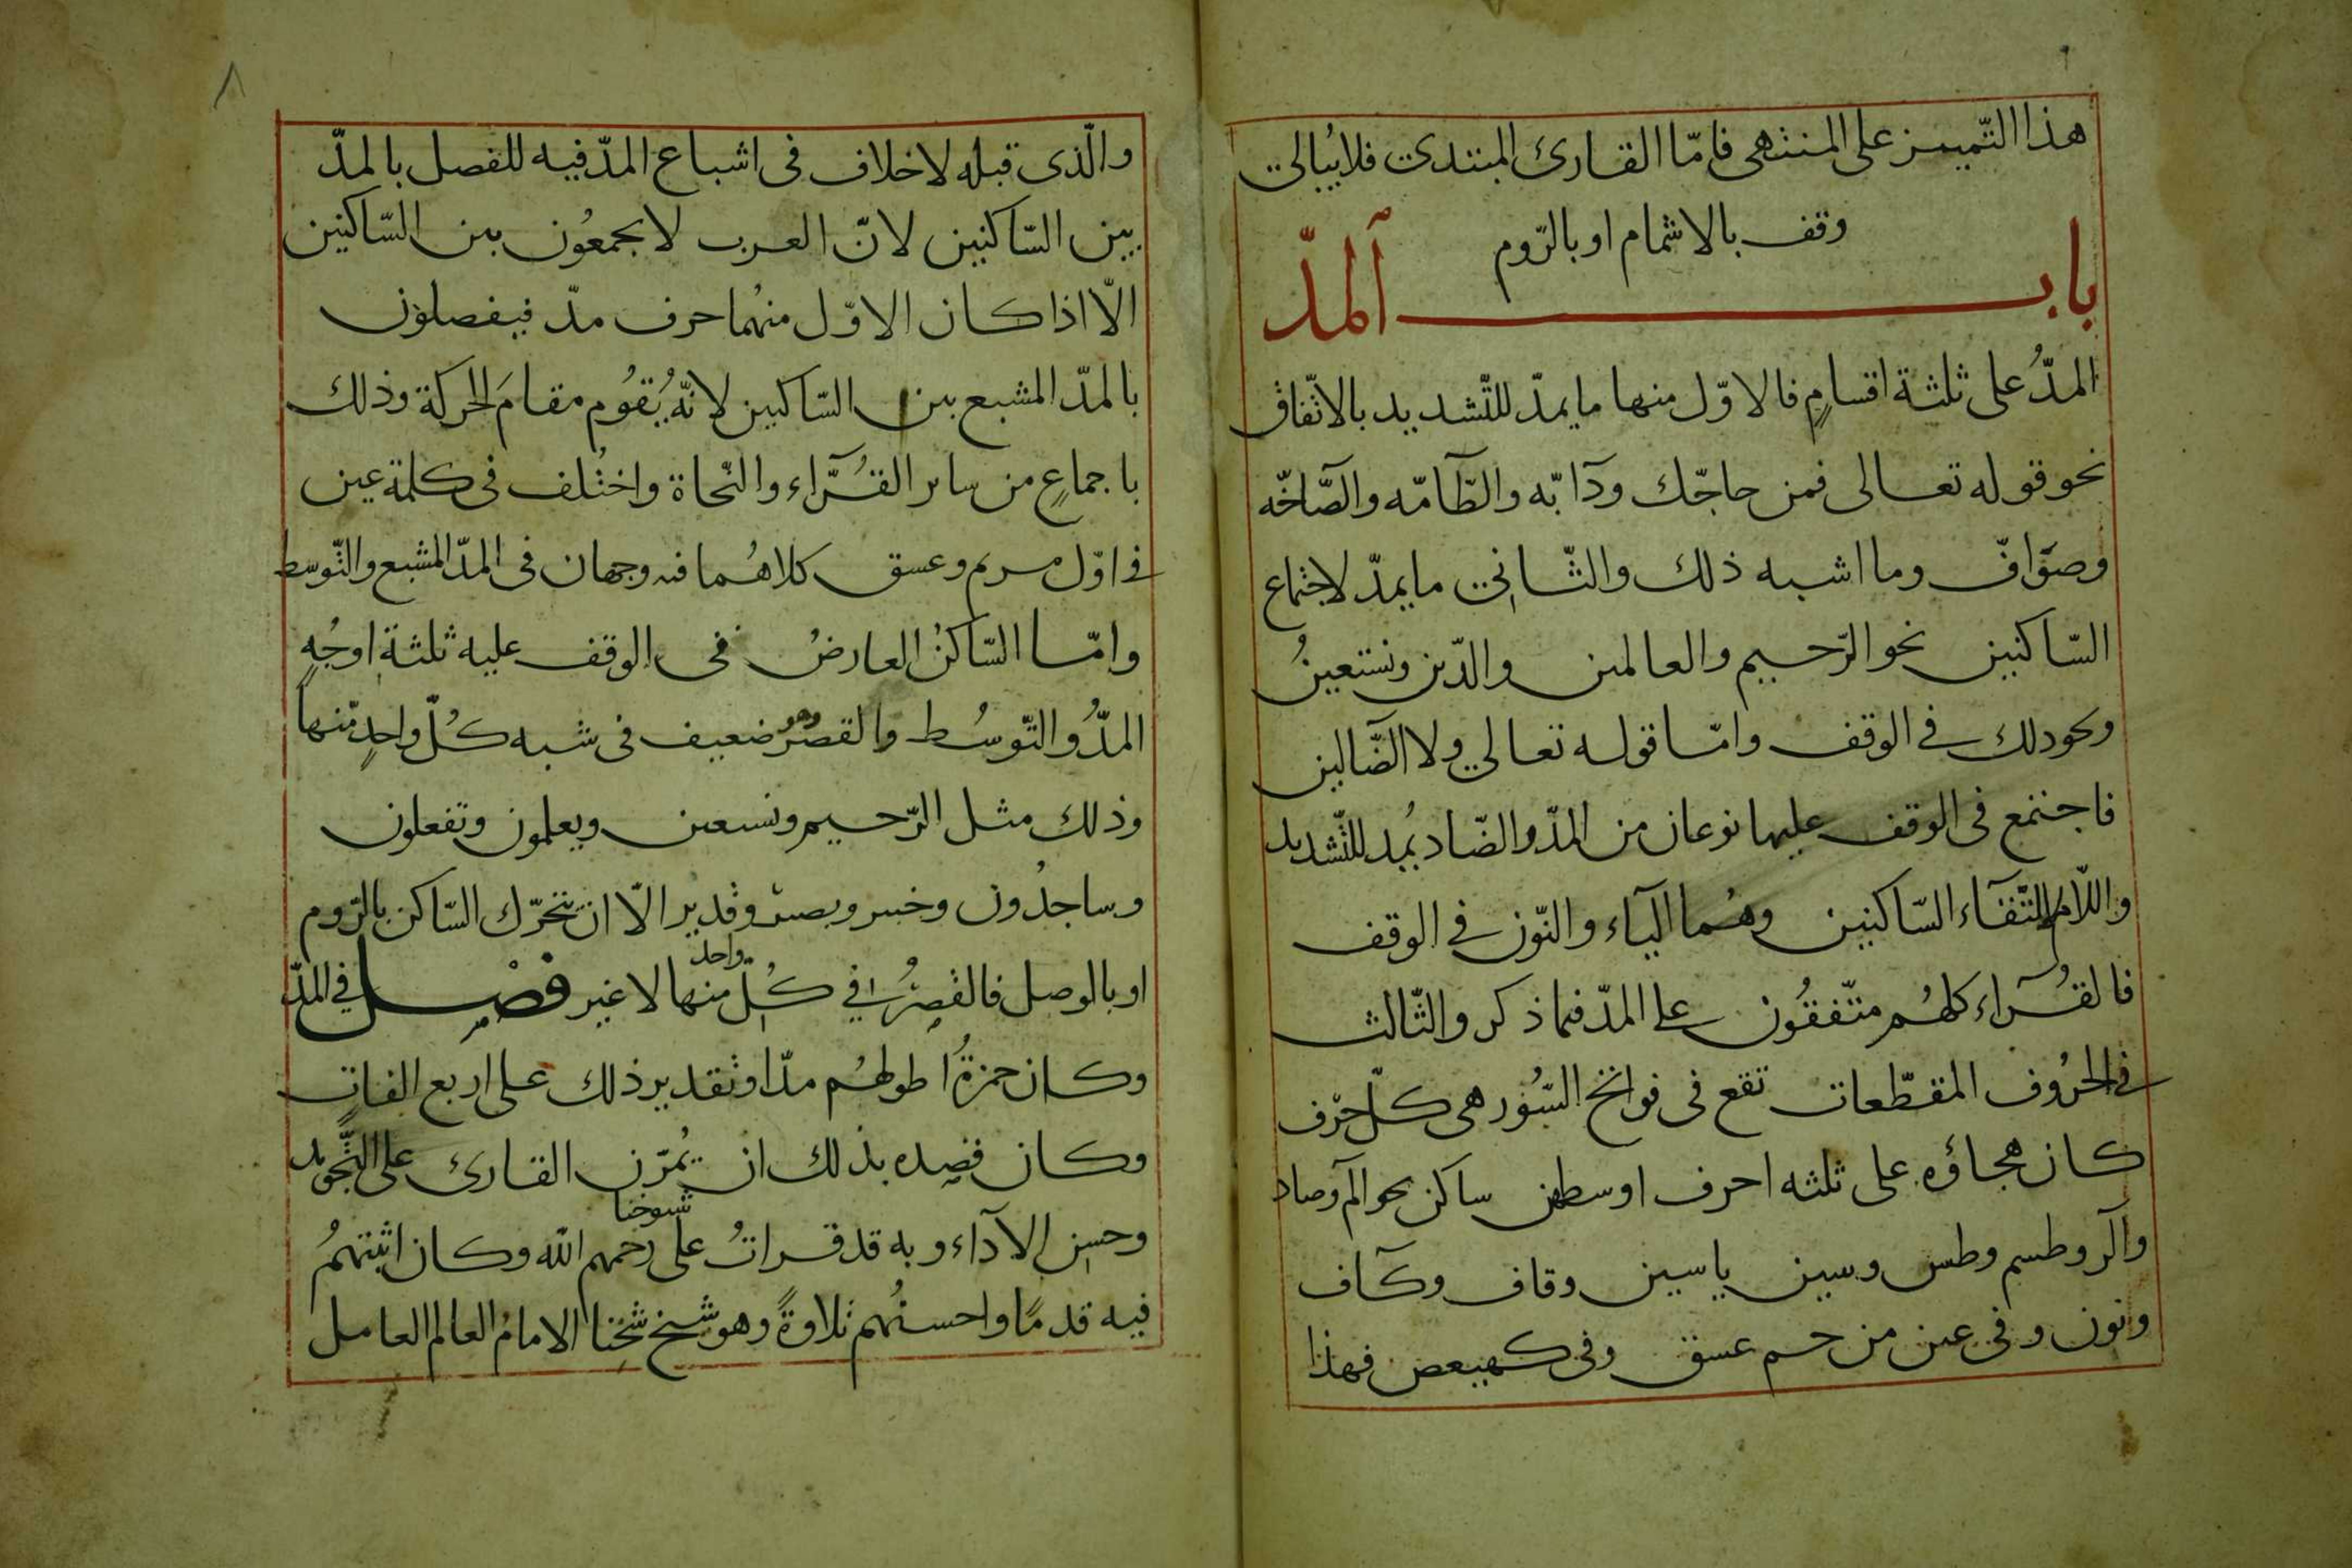 هذا التّمييز على المنتهى فامّا القارئ المبتدى فلا يُبالى
وقف بالاشمام او بالرّوم
باب آلمدّ
المدُّ على ثلثة اقسامٍ فالاوّل منها ما يمدّ للتّشديد بالاتّفاق
نحو قوله تعالى فمن حاجّك ودآابّه والطّآمّه والصّآخّه
وصوّافّ وما اشبه ذلك والثّانى ما يمدّ لاجتماع
السّاكنين نحو الرّحيم والعالمين والدّين ونستعينُ
ونحو ذلك فى الوقف وامّا قوله تعالى ولا الضّآلين
فاجتمع فى الوقف عليها نوعان من المدّ والضّاد يُمد للتّشديد
واللّام لالتقآء السّاكنين وهُما اليآء والنّون فى الوقف
فالقُرّآء كلهُم متّفقُون على المدّ فيما ذكر والثّالث
فى الحرُوف المقطّعات تقع فى فواتح السُّور هى كلّ حرف
كان هجاؤه على ثلثه احرف اوسطهن ساكن نحو الٓم وصاد
والٓر وطسم وطس وسين ياسين وقاف وكآف
ونون وفى عين من حم عسق وفى كهيعص فهذا
٨
والّذى قبله لا خلاف فى اشباع المدّ فيه للفصل بالمدّ
بين السّاكنين لانّ العرب لا يجمعُون بين السّاكنين
الّا اذا كان الاوّل منهُما حرف مدّ فيفصلون
بالمدّ المشبع بين السّاكنين لانّه يُقوُم مقامَ الحركة وذلك
باجماعٍ من ساير القُرّآء والنّحاة واختُلف فى كلمة عين
فى اوّل مريم وعسق كلاهُما فيه وجهان فى المدّ المشبع والتّوسط
وامّا السّاكنُ العارضُ فى الوقف عليه ثلثة اوجُهٍ
المدُّ والتّوسُط والقصرُ وهو ضعيف فى شبه كُلّ واحدٍ مّنها
وذلك مثل الرّحيم ونستعين ويعلمون وتفعلون
وساجدُون وخبير وبصير وقدير الّا ان يتحرّك السّاكن بالرّوم
او بالوصل فالقصرُ فى كُلّ واحد منها لا غير فصْل فى المدّ
وكان حمزةُ اطولهُم مدّا وتقدير ذلك على اربع الفاتٍ
وكان قصده بذلك ان يُمرّن القارئ على التّجويد
وحسن الآداء وبه قد قراتُ على شيوخنا رحمهم الله وكان اثبتهمُ
فيه قدمًا واحسنُهم تلاوةً وهو شيخ شيخنا الامامُ العالم العامل